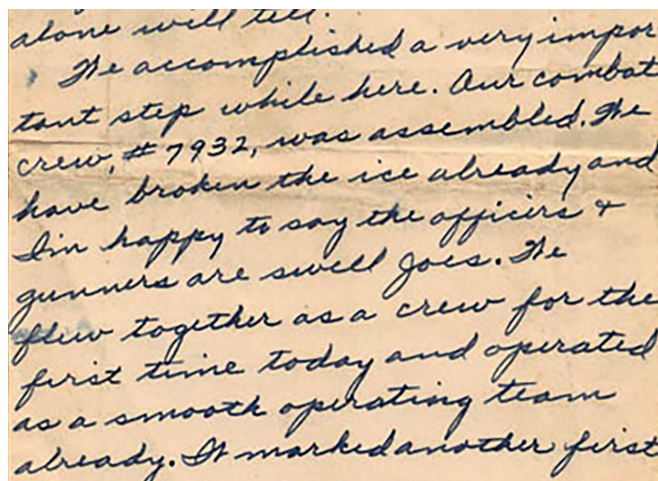 alone will tell.
We accomplished a very impor
tant step while here. Our combat
crew, #7932, was assembled. We
have broken the ice already and
I'm happy to say the officers +
gunners are swell Joes. We
flew together as a crew for the
first time today and operated
as a smooth operating team
already. It marked another first